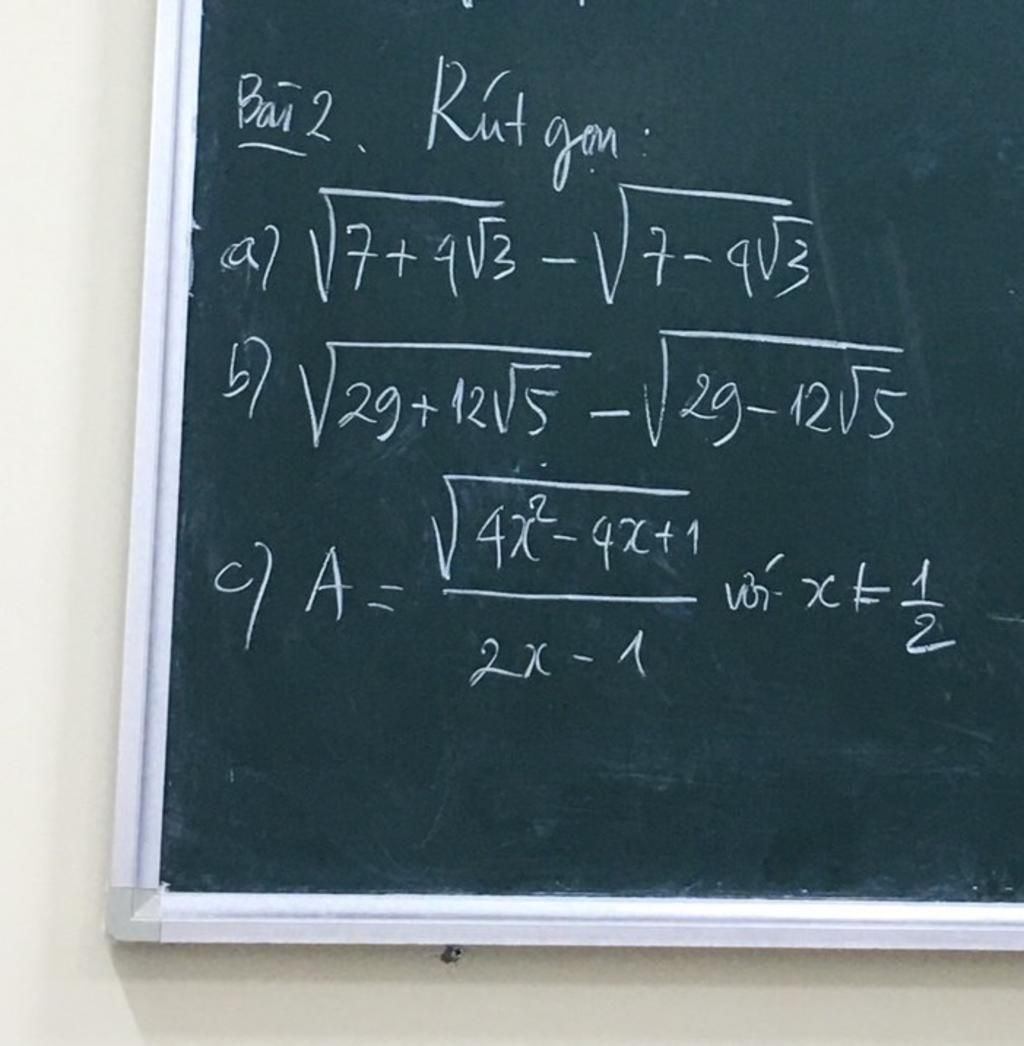 Bài 2. Rút gọn:
a) √(7+4√3) - √(7-4√3)
b) √(29+12√5) - √(29-12√5)
c) A = √(4x²-4x+1) / (2x-1) với x ≠ 1/2